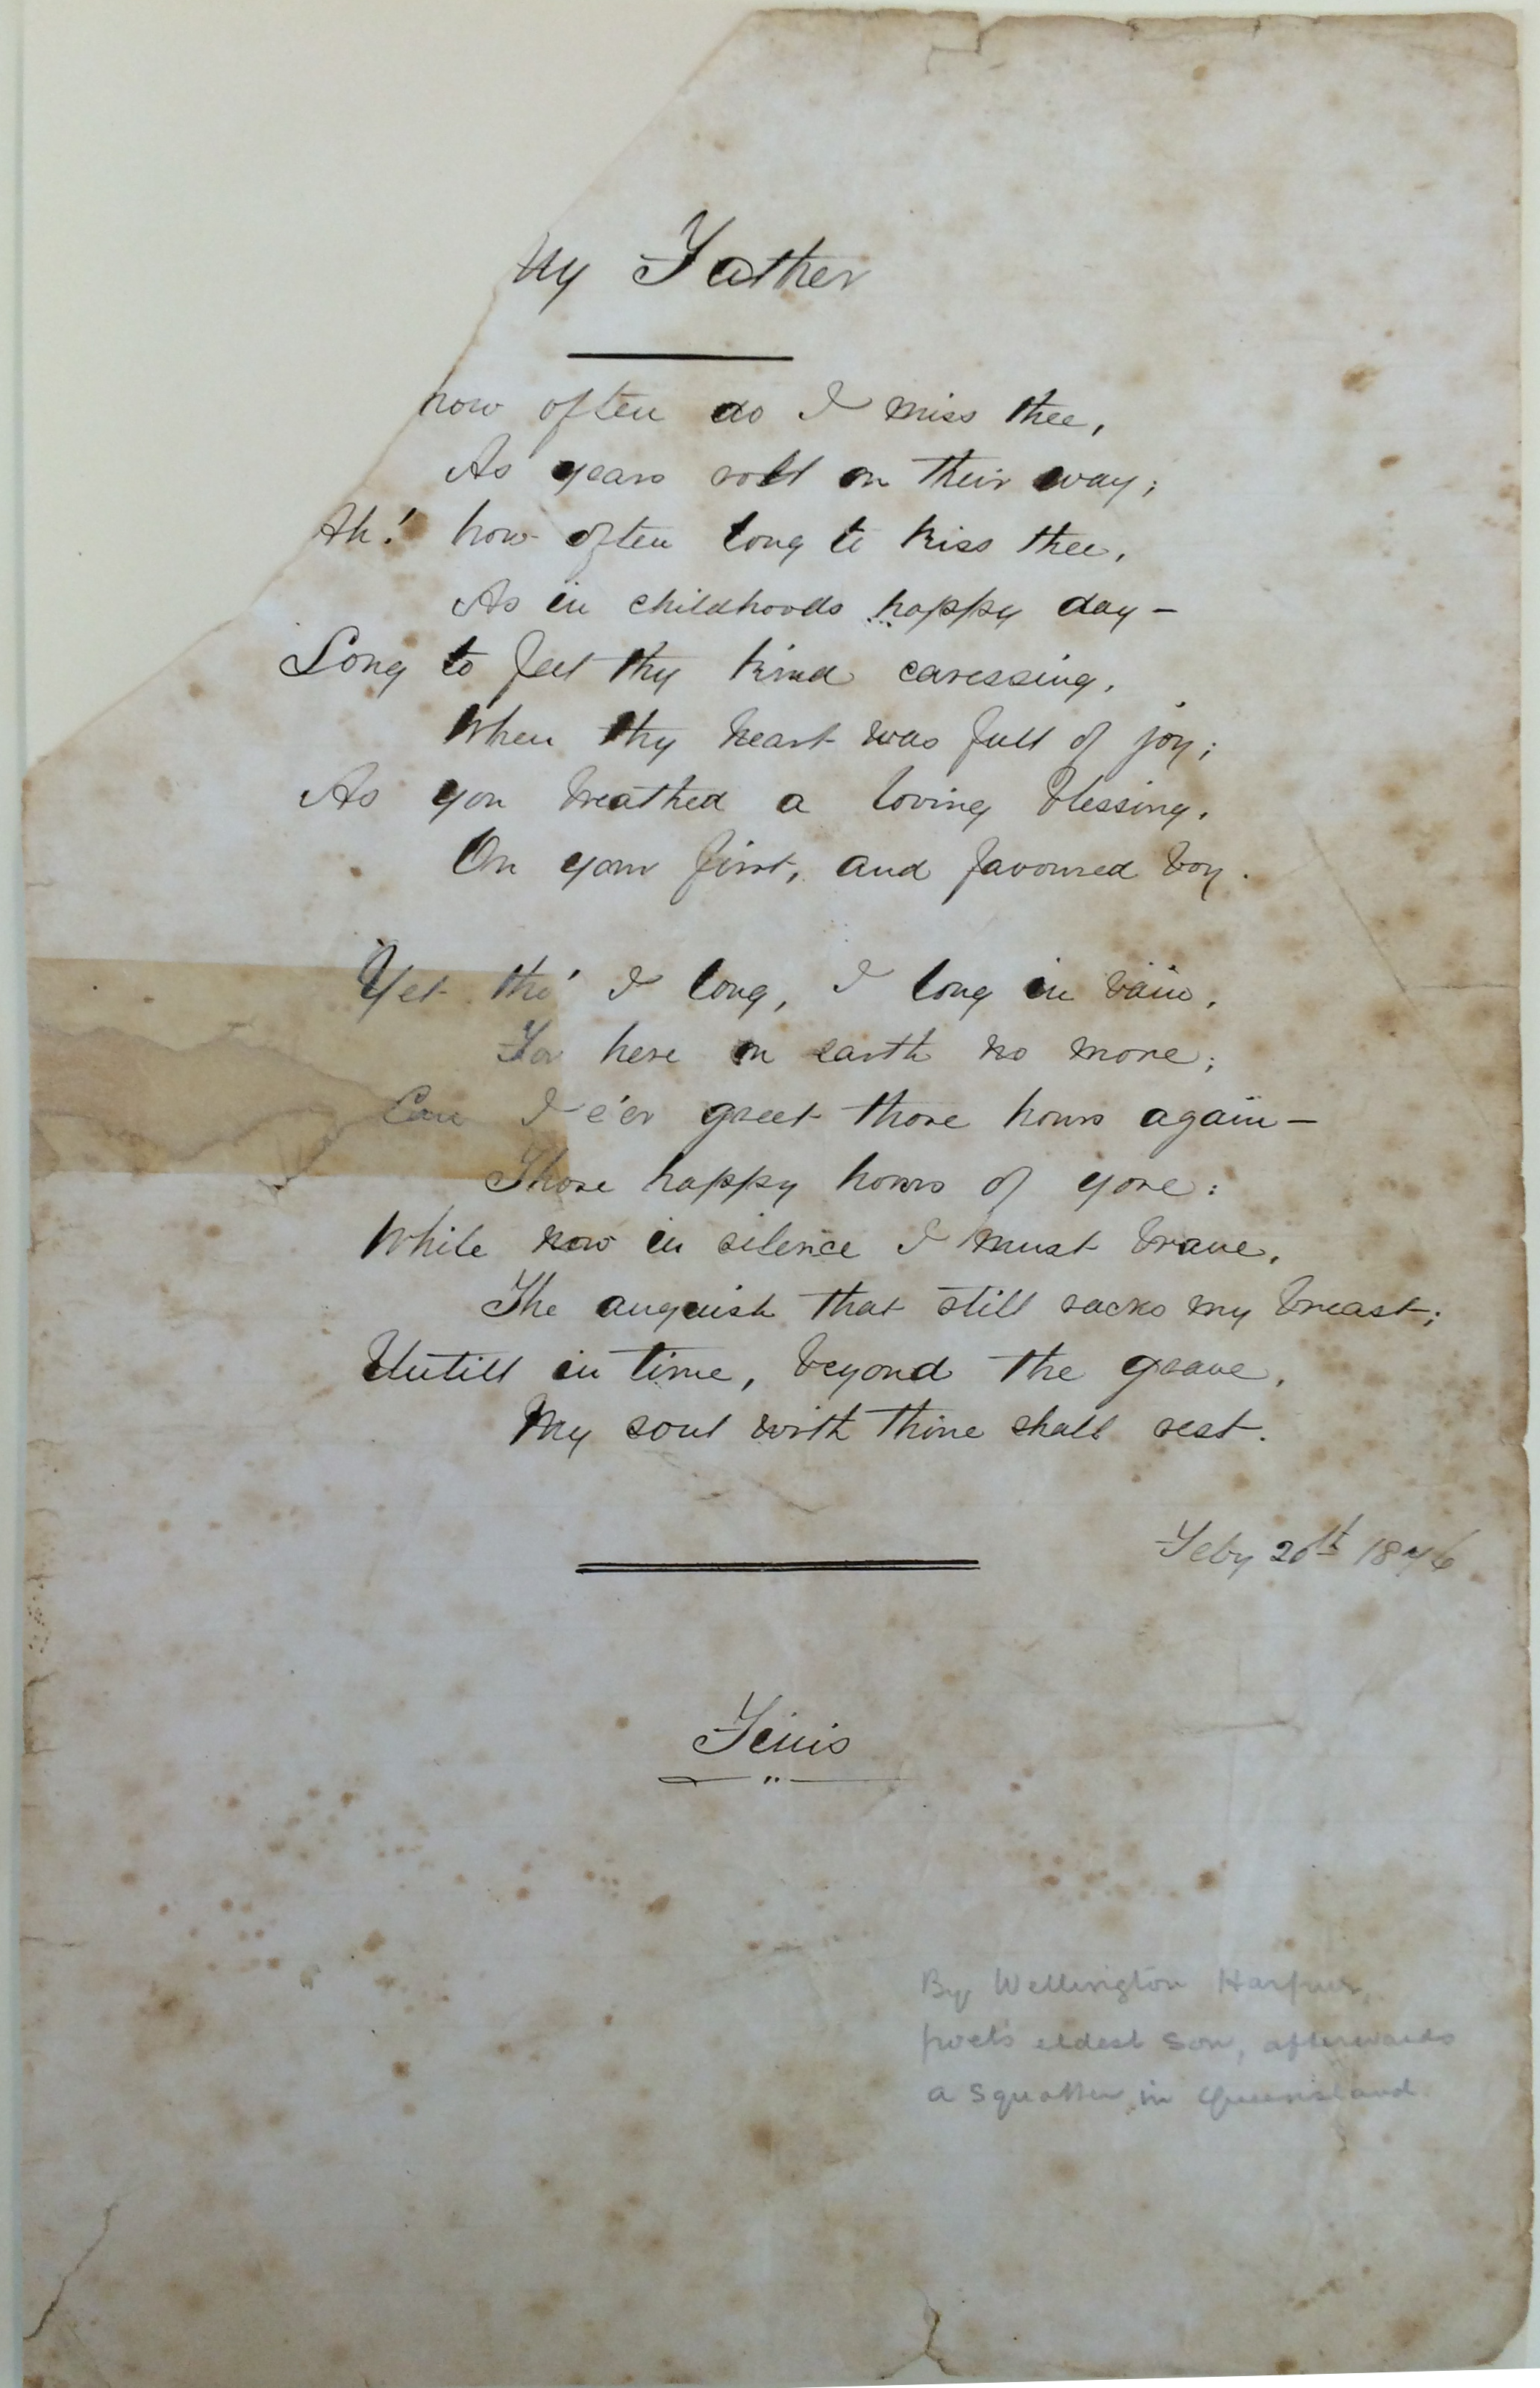 My Father
how often do I miss thee,
As years roll on their way;
Ah! how often long to kiss thee,
As in childhoods happy day—
Long to feel thy kind caressing,
When thy heart was full of joy;
As you breathed a loving blessing,
On your first, and favoured boy.
Yet tho' I long, I long in vain,
For here on earth no more;
Can I e'er greet those hours again—
Those happy hours of yore:
While now in silence I must brave,
The anguish that still racks my breast;
Untill in time, beyond the grave,
My soul with thine shall rest.
Feby 20th
Finis
By Wellington Harpur,
poet's eldest son, afterwards
a squatter in Queensland.